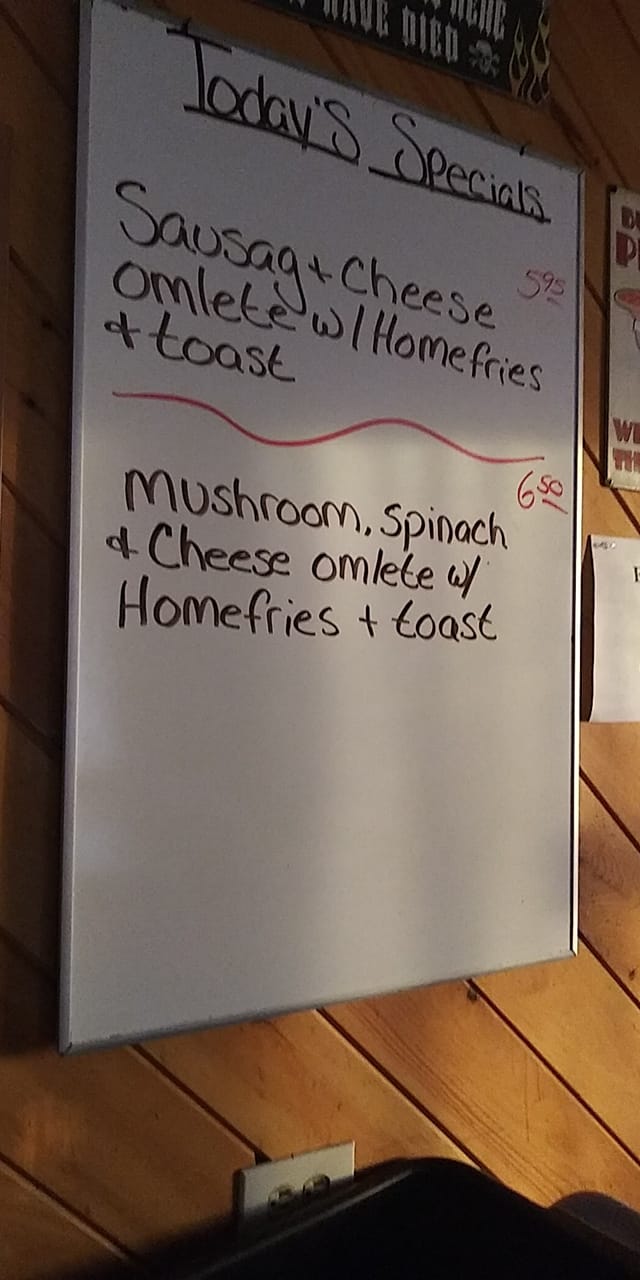 HERE
HAVE DIED
Today's Specials
Sausag + Cheese 5.95
omlete w/ Homefries
+ toast
6.50
Mushroom, Spinach
& Cheese omlete w/
Homefries + toast